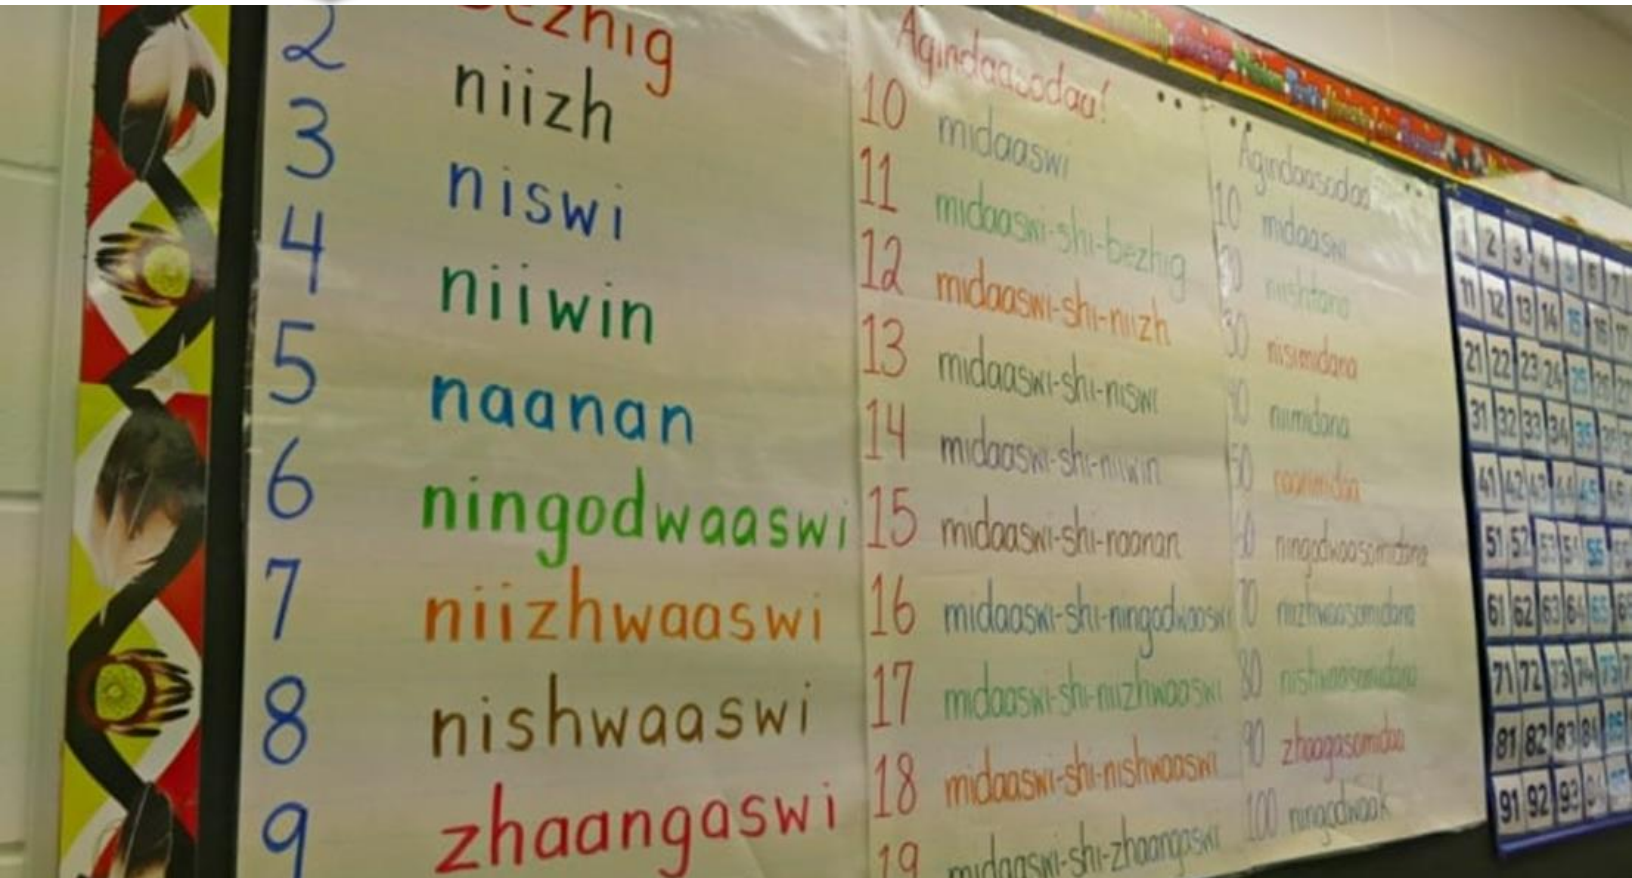 2 bezhig
3 niizh
4 niswi
5 niiwin
6 naanan
7 ningodwaaswi
8 niizhwaaswi
9 nishwaaswi
zhaangaswi
Agindaasodaa!
10 midaaswi
11 midaaswi-shi-bezhig
12 midaaswi-shi-niizh
13 midaaswi-shi-niswi
14 midaaswi-shi-niiwin
15 midaaswi-shi-naanan
16 midaaswi-shi-ningodwaaswi
17 midaaswi-shi-niizhwaaswi
18 midaaswi-shi-nishwaaswi
19 midaaswi-shi-zhaangaswi
Agindaasodaa
10 midaaswi
niishtana
30 nisimidana
niimidana
50
ningodwaasomidana
70 niizhwaasomidana
80 nishwaasomidana
90
100 ningodwaak
1 2 3 4 5 6 7
11 12 13 14 15 16 17
21 22 23 24 25 26 27
31 32 33 34 35
41 42 43 44 45
51 52 53 54 55
61 62 63 64 65
71 72 73 74 75
81 82 83 84 85
91 92 93